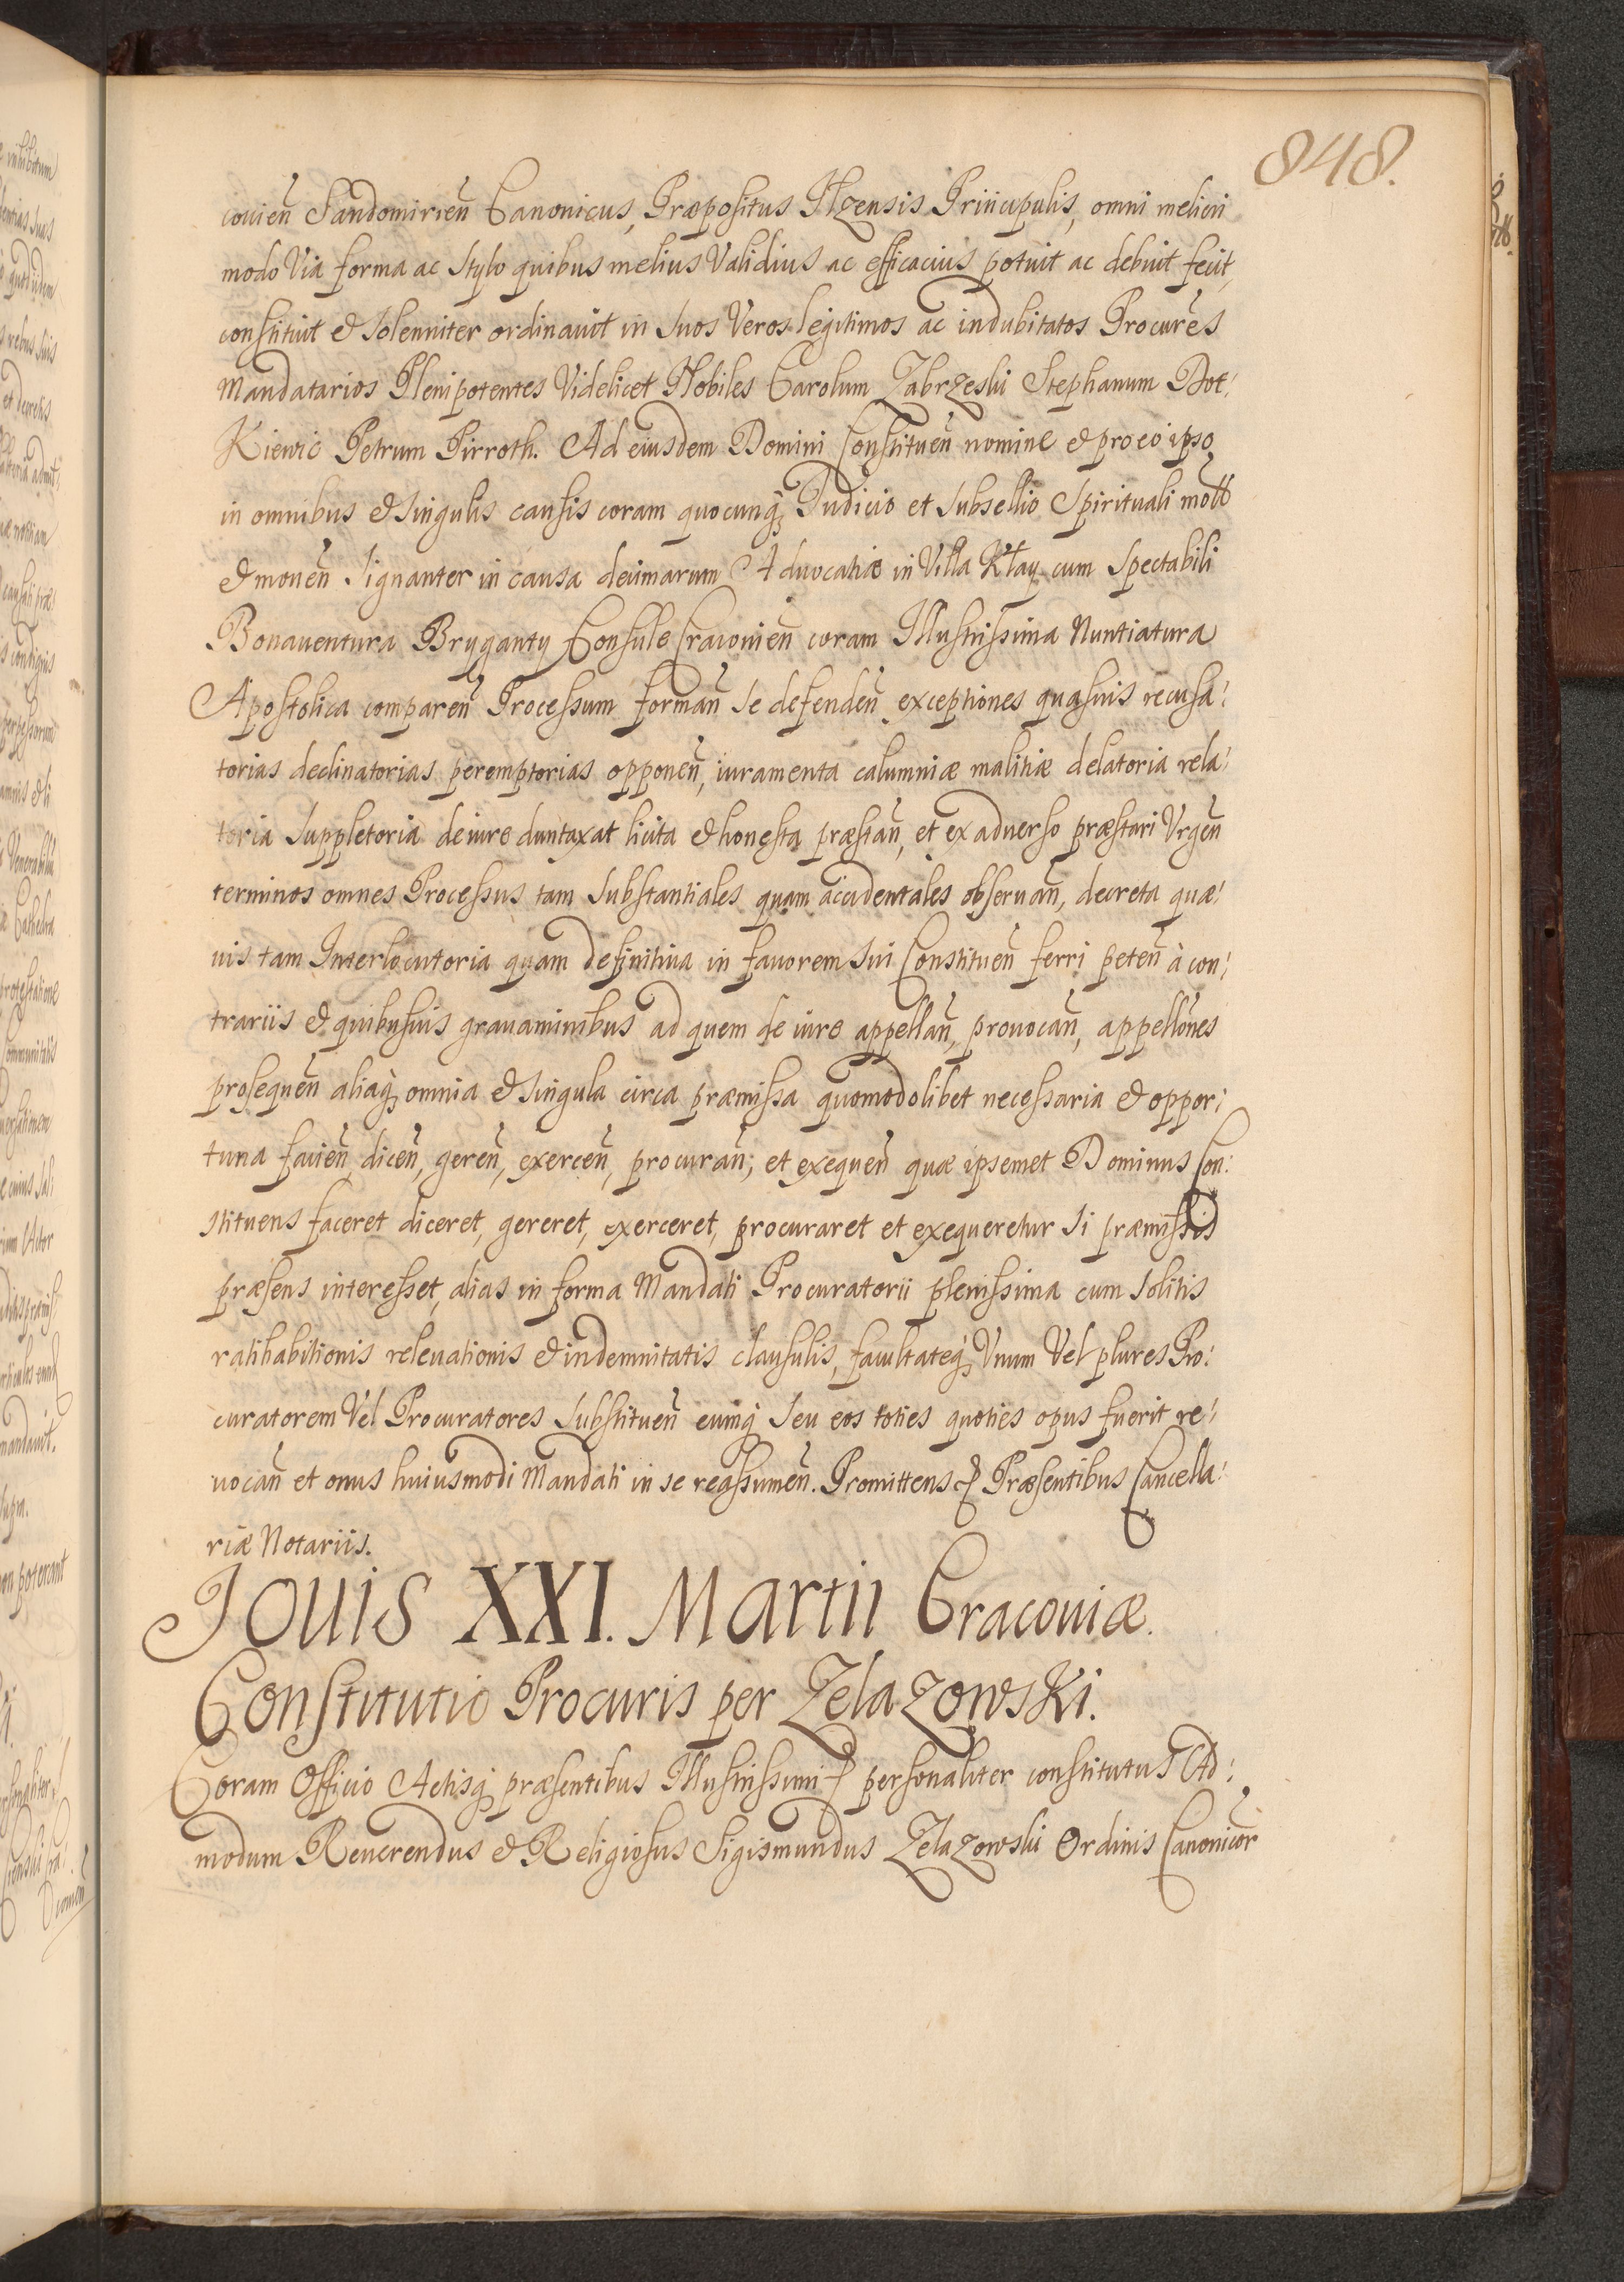 848.
couien̄ Sandomirien̄ Canonicus, Præpositus Ilzensis Principalis, omni meliori
modo Via forma ac stylo quibus melius Validius ac efficacius potuit ac debuit fecit,
constituit et solenniter ordinauit in suos Veros legitimos ac indubitatos Procur̄es
Mandatarios Plenipotentes Videlicet Nobiles Carolum Zabrzeski Stephanum Dot:
Kiewic Petrum Pirroth. Ad eiusdem Domini Constituen̄ nomine et pro eo ipso
in omnibus et singulis causis coram quocunq́ Iudicio et subsellio Spirituali mot̄o
et mouen̄ signanter in causa decimarum Aduocatiæ in Villa Kłay cum Spectabili
Bonauentura Bryganty Consule Cracouien̄ coram Illustrissima Nuntiatura
Apostolica comparen̄ Processum forman̄ se defenden̄ exceptiones quasuis recusa:
torias declinatorias peremptorias opponen̄, iuramenta calumniæ malitiæ delatoria rela:
toria suppletoria de iure duntaxat licita et honesta præstan̄, et ex aduerso præstari Vrgen̄
terminos omnes Processus tam substantiales quam accidentales obseruan̄, decreta quæ:
uis tam Interlocutoria quam definitiua in fauorem sui Constituen̄ ferri peten̄ à con:
trariis et quibusuis grauaminibus ad quem de iure appellan̄, prouocan̄, appellōnes
prosequen̄ aliaq́ omnia et singula circa præmissa quomodolibet necessaria et oppor:
tuna facien̄ dicen̄, geren̄, exercen̄, procuran̄; et exequen̄ quæ ipsemet Dominus Con:
stituens faceret diceret, gereret, exerceret, procuraret et exequeretur si præmissis
præsens interesset, alias in forma Mandati Procuratorii plenissima cum solitis
ratihabitionis releuationis et indemnitatis clausulis, facultateq́ Vnum Vel plures Pro:
curatorem Vel Procuratores substituen̄ eumq́ seu eos toties quoties opus fuerit re:
uocan̄ et onus huiusmodi Mandati in se reassumen̄. Promittens Præsentibus Cancella:
riæ Notariis.
Iouis XXI. Martii Cracouiæ.
Constitutio Procuris per Zelazowski.
Coram Officio Actisq́ præsentibus Illustrissimi personaliter constitutus Ad:
modum Reuerendus et Religiosus Sigismundus Zelazowski Ordinis Canonicor̄